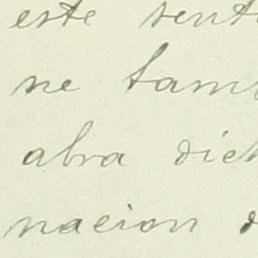 este sent
ne tam
abra dich
nacion d